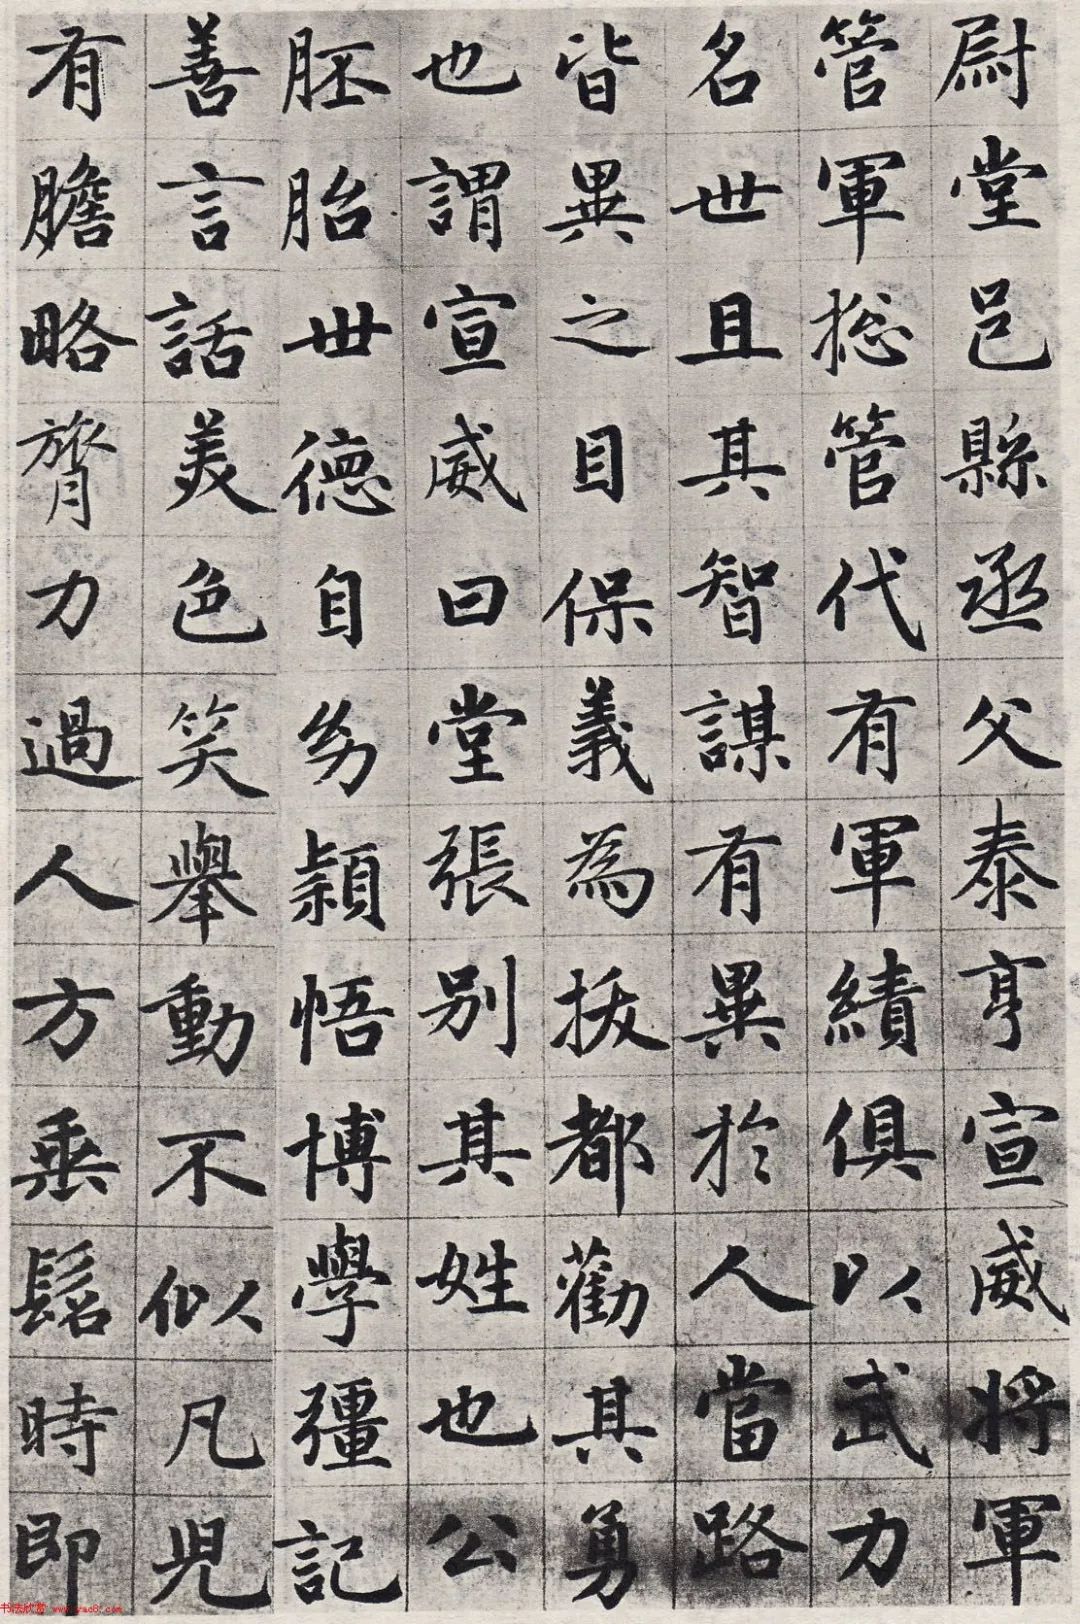 尉堂邑縣丞父泰亨宣威將軍
管軍総管代有軍績俱以武力
名世且其智謀有異於人當路
皆異之目保義為拔都勸其勇
也謂宣威曰堂張別其姓也公
胚胎世德自幼穎悟博學彊記
善言話美色笑舉動不似凡児
有膽略膂力過人方垂髫時即
书法欣赏 www.yac8.com